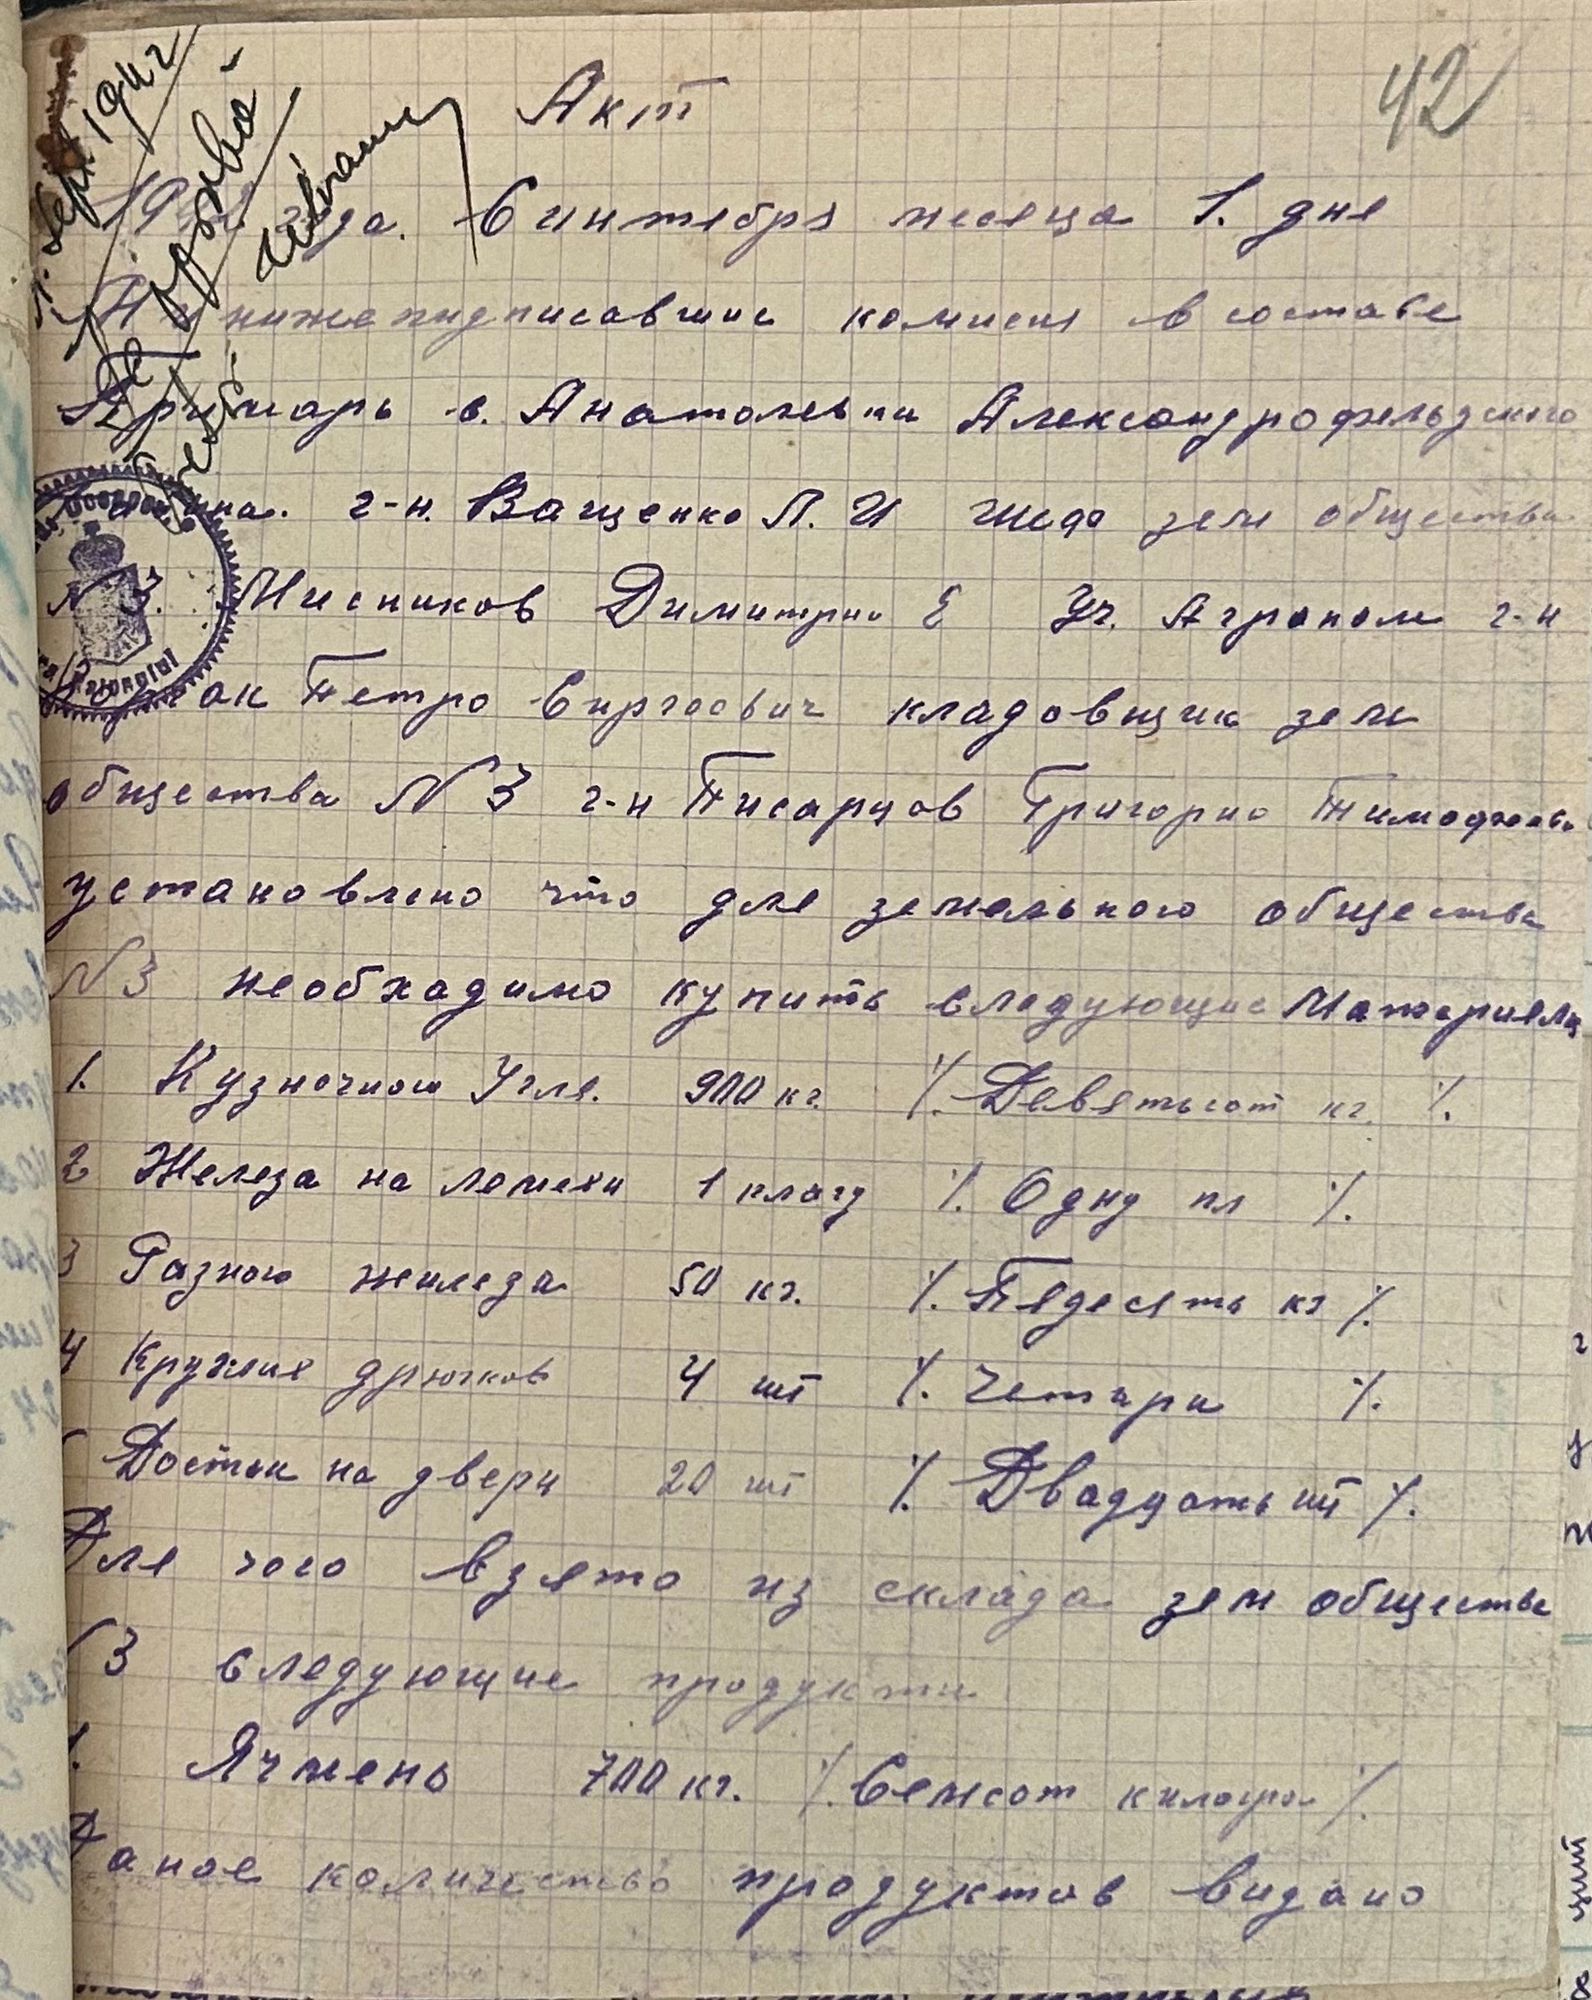 42
Sept 1942
Акт
года. Синтебря месеца 1. дня
нижеподписавшие комисия в составе
Примарь с. Анатолевки Александрофельдского
г-н. Ващенко Л. И шеф зем общества
N 3. Мисников Димитрий Е Уч. Агроном г-н
Петро Сиргеович кладовщик зем
общества N 3 г-н Писарцов Григорио Тимофееви
установлено что для земельного общества
N 3 необходимо купить следующие Материялы
1. Кузночного Угля. 900 кг. ٪ Девятьсот кг. ٪
2 Железа на лемехи 1 плагу ٪ Одну пл ٪
3 Разного жилеза 50 кг. ٪ Пядесять кг ٪
4 Круглих дрючков 4 шт ٪ Четири ٪
Досток на двери 20 шт ٪ Двадцать шт ٪
Для чого взято из склада зем общества
N3 следующие продукти
1. Ячмень 700 кг. ٪ Семсот килогра ٪
Даное количество продуктов видано